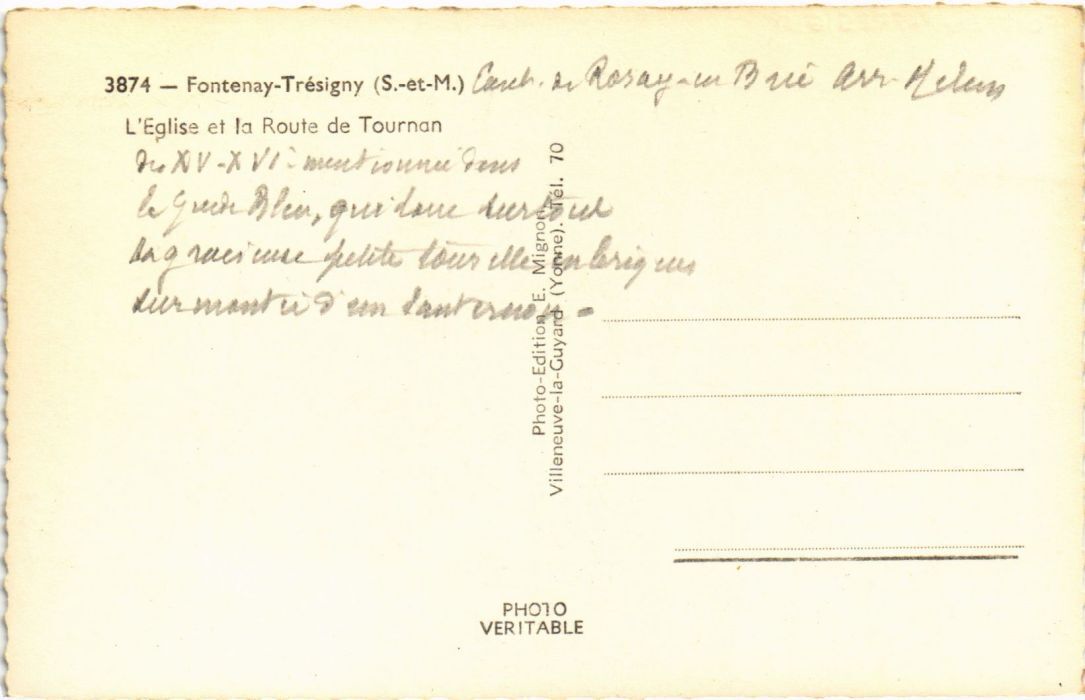 3874 — Fontenay-Trésigny (S.-et-M.) Cant. de Rosay-en Brie Arr. Melun
L'Eglise et la Route de Tournan
des XV-XVIè mentionnée dans
le Guide Bleu, qui loue surtout
sa gracieuse petite tourelle en briques
surmontée d'un lanternon -
Photo-Edition E. Mignon
Villeneuve-la-Guyard (Yonne). Tél. 70
PHOTO
VERITABLE